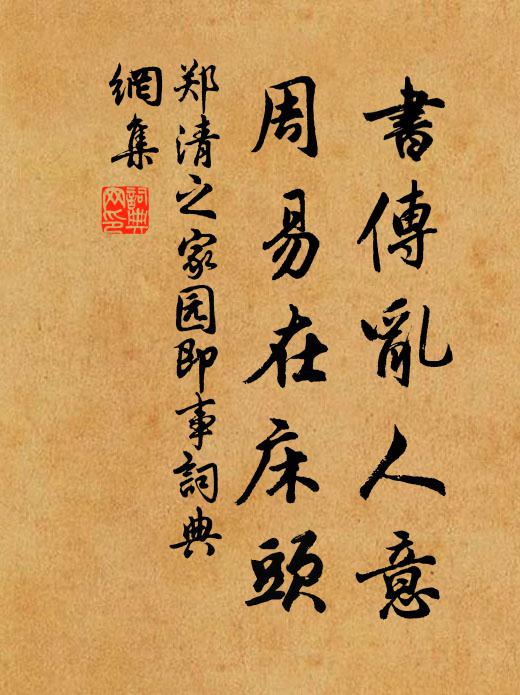 書傳亂人意
周易在床頭
郑清之家园即事詞典
網集
詞典網印